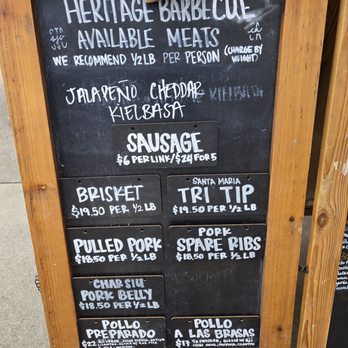 HERITAGE BARBECUE
AVAILABLE MEATS
WE RECOMMEND 1/2 LB PER PERSON (CHARGE BY WEIGHT)
JALAPEÑO CHEDDAR
KIELBASA
SAUSAGE
$6 PER LINK/$24 FOR 5
BRISKET
$19.50 PER 1/2 LB
SANTA MARIA
TRI TIP
$19.50 PER 1/2 LB
PULLED PORK
$18.50 PER 1/2 LB
PORK
SPARE RIBS
$18.50 PER 1/2 LB
CHAR SIU
PORK BELLY
$18.50 PER 1/2 LB
POLLO
PREPARADO
$22
POLLO
A LAS BRASAS
$17 1/2 CHICKEN,